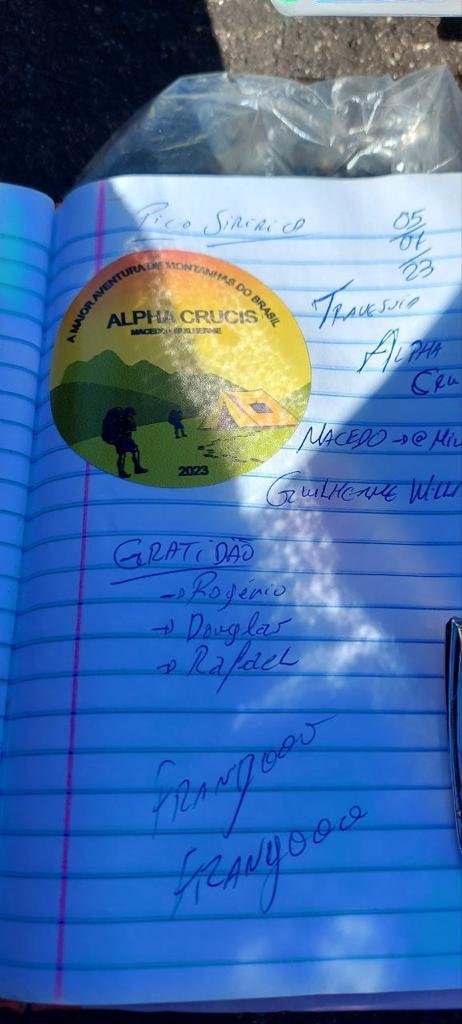 Pico Siririca
05
07
23
A MAIOR AVENTURA DE MONTANHAS DO BRASIL
ALPHA CRUCIS
MACEDO - GUILHERME
2023
TRAVESSIA
ALPHA
CRU
MACEDO → @
GUILHERME WILL
GRATIDÃO
→ Rogério
→ Douglas
→ Rafael
FRANGOOO
FRANGOOO